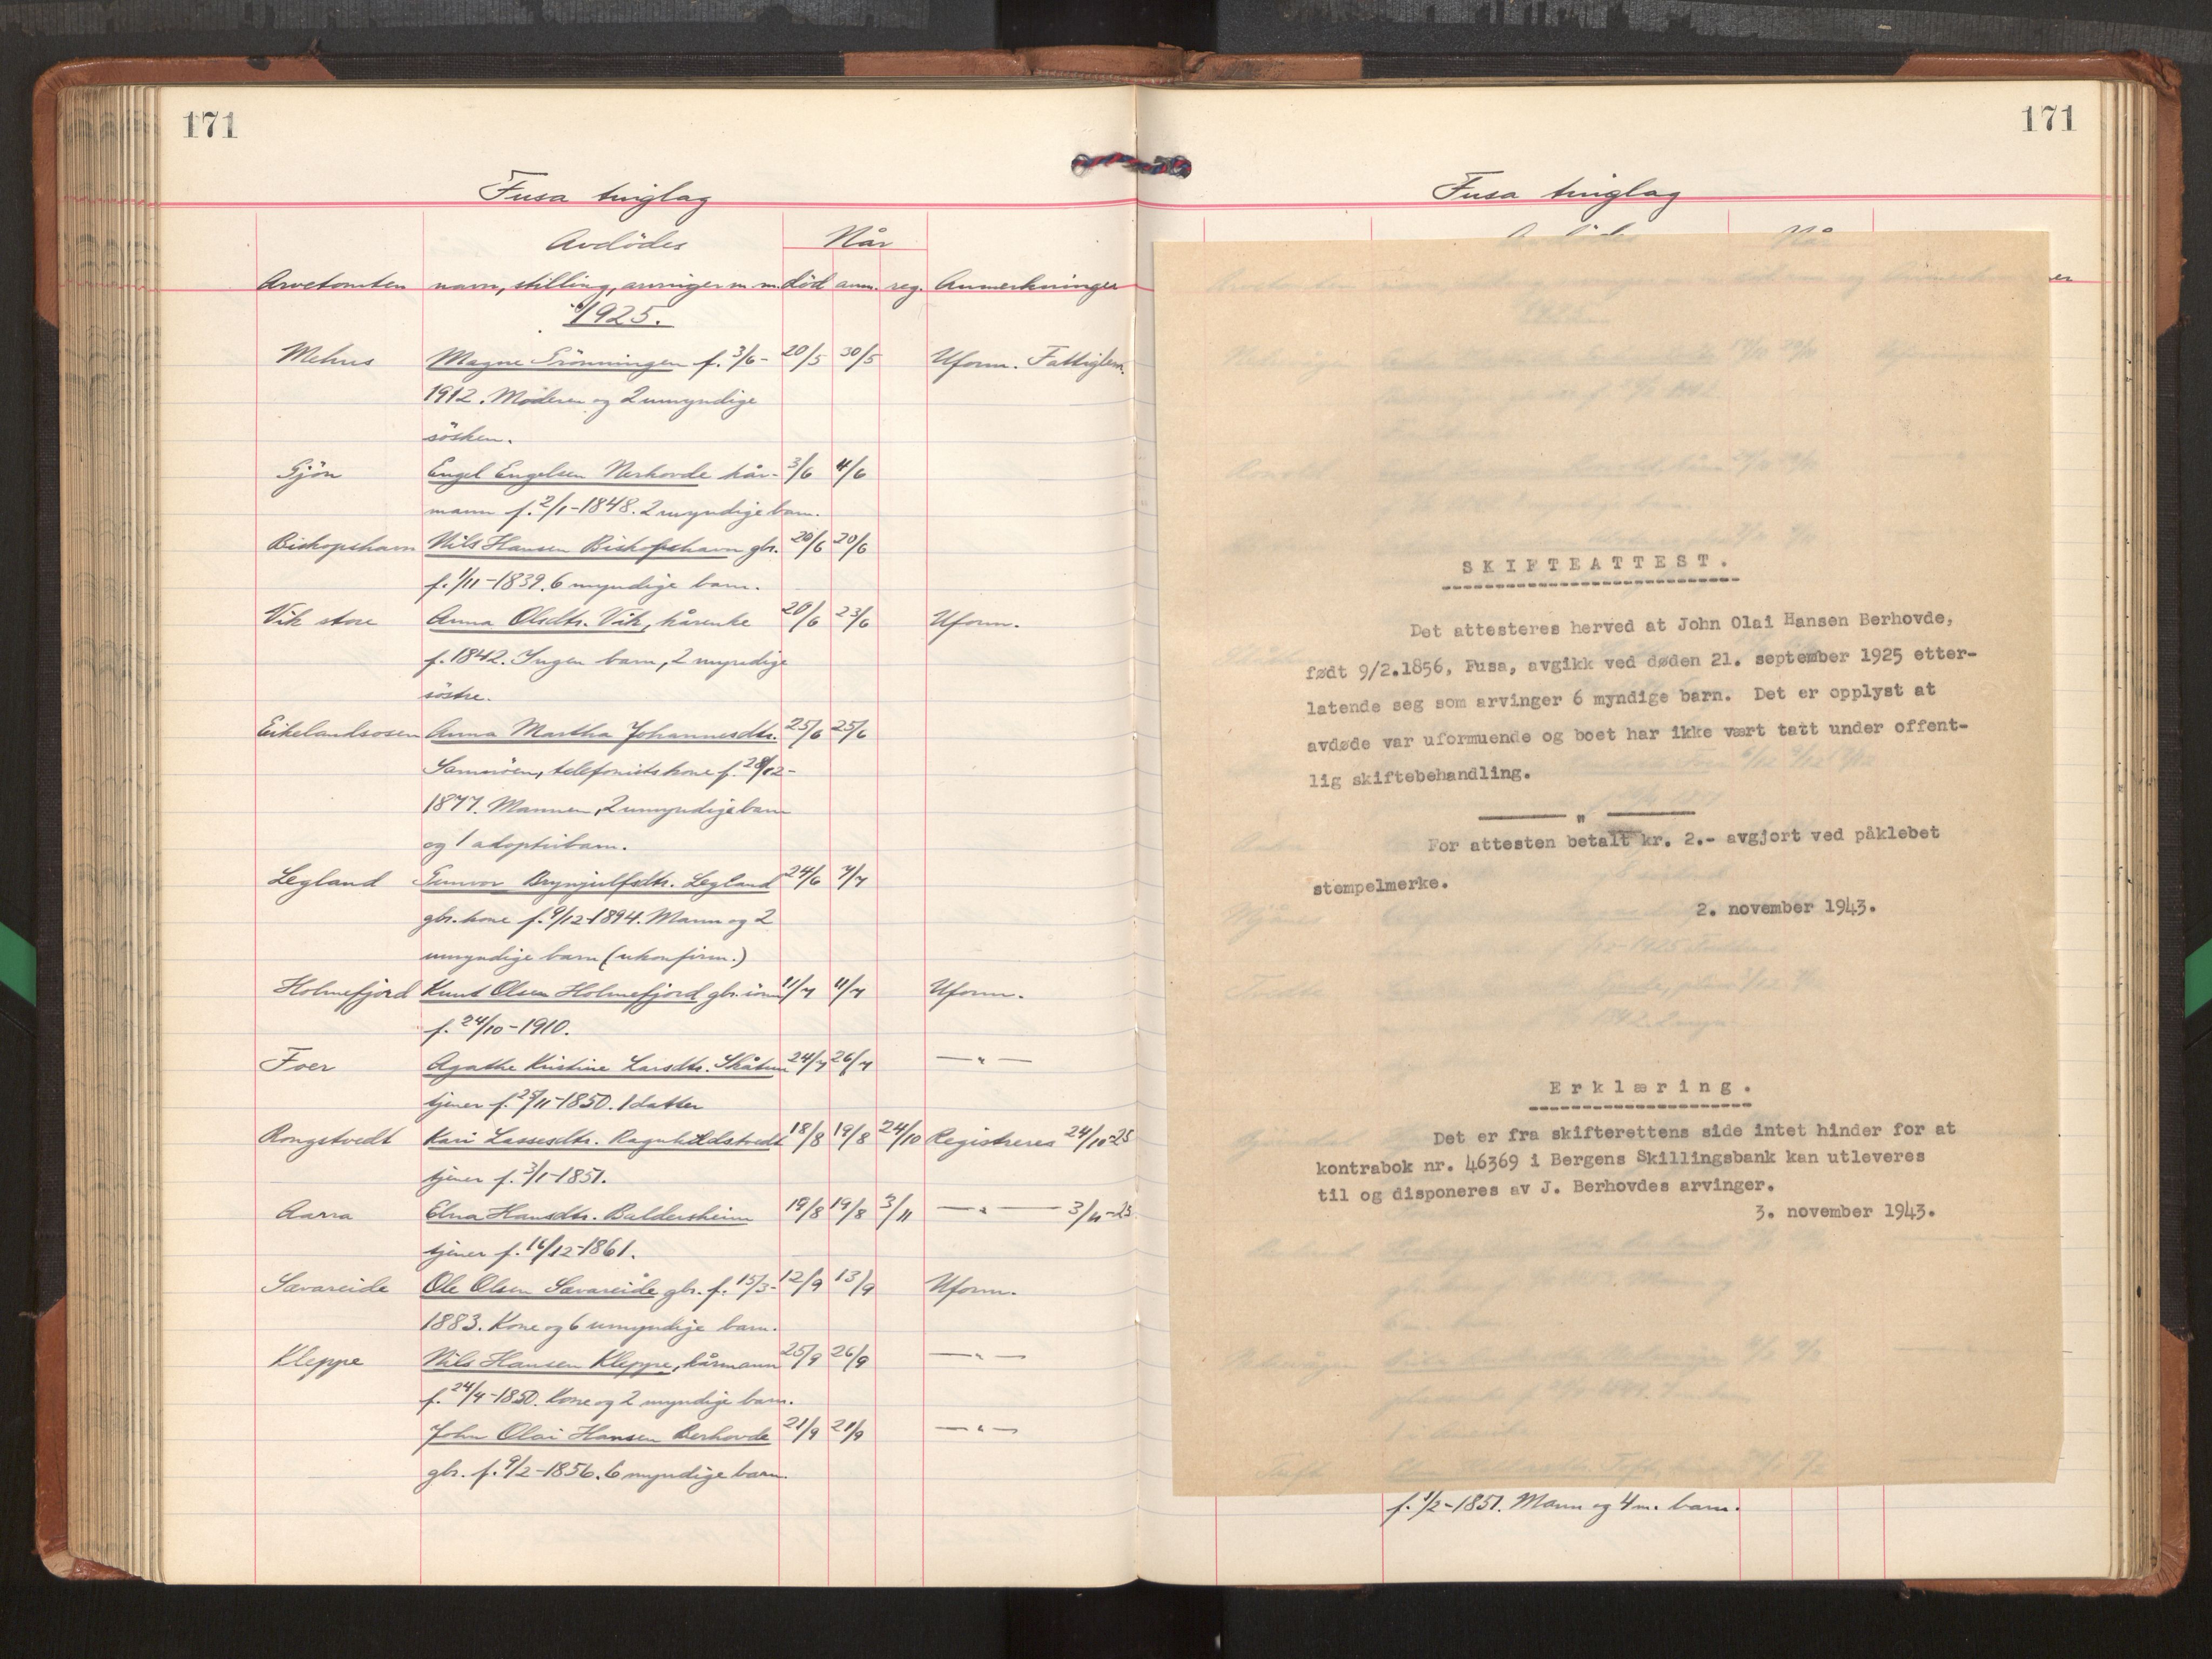 171
Fusa tinglag
Avdödes Når
Arvetomten navn, stilling, arvinger m m. död anm. reg. Anmerkninger
1925.
Mehus Magne Grönningen f. 3/6- 20/5 30/5 Uform. Fattiglem.
1912. Moderen og 2 umyndige
sösken.
Gjön Engel Engelsen Nerhovde kår- 3/6 4/6
mann f. 2/1-1848. 2 myndige barn.
Bishopshavn Nils Hansen Bishopshavn gbr. 20/6 20/6
f. 1/11-1839. 6 myndige barn.
Vik store Anna Olsdtr. Vik, kårenke 20/6 23/6 Uform.
f. 1842. Ingen barn, 2 myndige
söstre.
Eikelandsosen Anna Martha Johannesdtr. 25/6 25/6
Samnöen, telefonists kone f. 28/12-
1877. Mannen, 2 umyndige barn
og 1 adoptivbarn.
Legland Gunvor Brynjulfsdtr. Legland 24/6 7/7
gbr. kone f. 9/12-1894. Mann og 2
umyndige barn (ukonfirm.)
Holmefjord Knut Olsen Holmefjord gbr. sönn 11/7 11/7 Uform.
f. 24/10-1910.
Foer Agathe Kristine Larsdtr. Skåtun 24/7 26/7 — " —
tjener f. 25/11-1850. 1 datter
Rongstvedt Kari Lassesdtr. Ragnhildstvedt 18/8 19/8 24/10 Registreres 24/10-25
tjener f. 3/1-1851.
Aarra Elna Hansdtr. Baldersheim 19/8 19/8 3/11 — " — 3/11-25
tjener f. 16/12-1861.
Sævareide Ole Olsen Sævareide gbr. f. 15/3- 12/9 13/9 Uform.
1883. Kone og 6 umyndige barn.
Kleppe Nils Hansen Kleppe, kårmann 25/9 26/9 — " —
f. 24/4-1850. Kone og 2 myndige barn.
John Olai Hansen Berhovde 21/9 21/9 — " —
gbr. f. 9/2-1856. 6 myndige barn.
171
Fusa tinglag
SKIFTEATTEST.
Det attesteres herved at John Olai Hansen Berhovde,
født 9/2.1856, Fusa, avgikk ved døden 21. september 1925 etter-
latende seg som arvinger 6 myndige barn. Det er opplyst at
avdøde var uformuende og boet har ikke vært tatt under offent-
lig skiftebehandling.
— " —
For attesten betalt kr. 2.- avgjort ved påklebet
stempelmerke.
2. november 1943.
Erklæring.
Det er fra skifterettens side intet hinder for at
kontrabok nr. 46369 i Bergens Skillingsbank kan utleveres
til og disponeres av J. Berhovdes arvinger.
3. november 1943.
f. 1/2-1851. Mann og 4 m. barn.